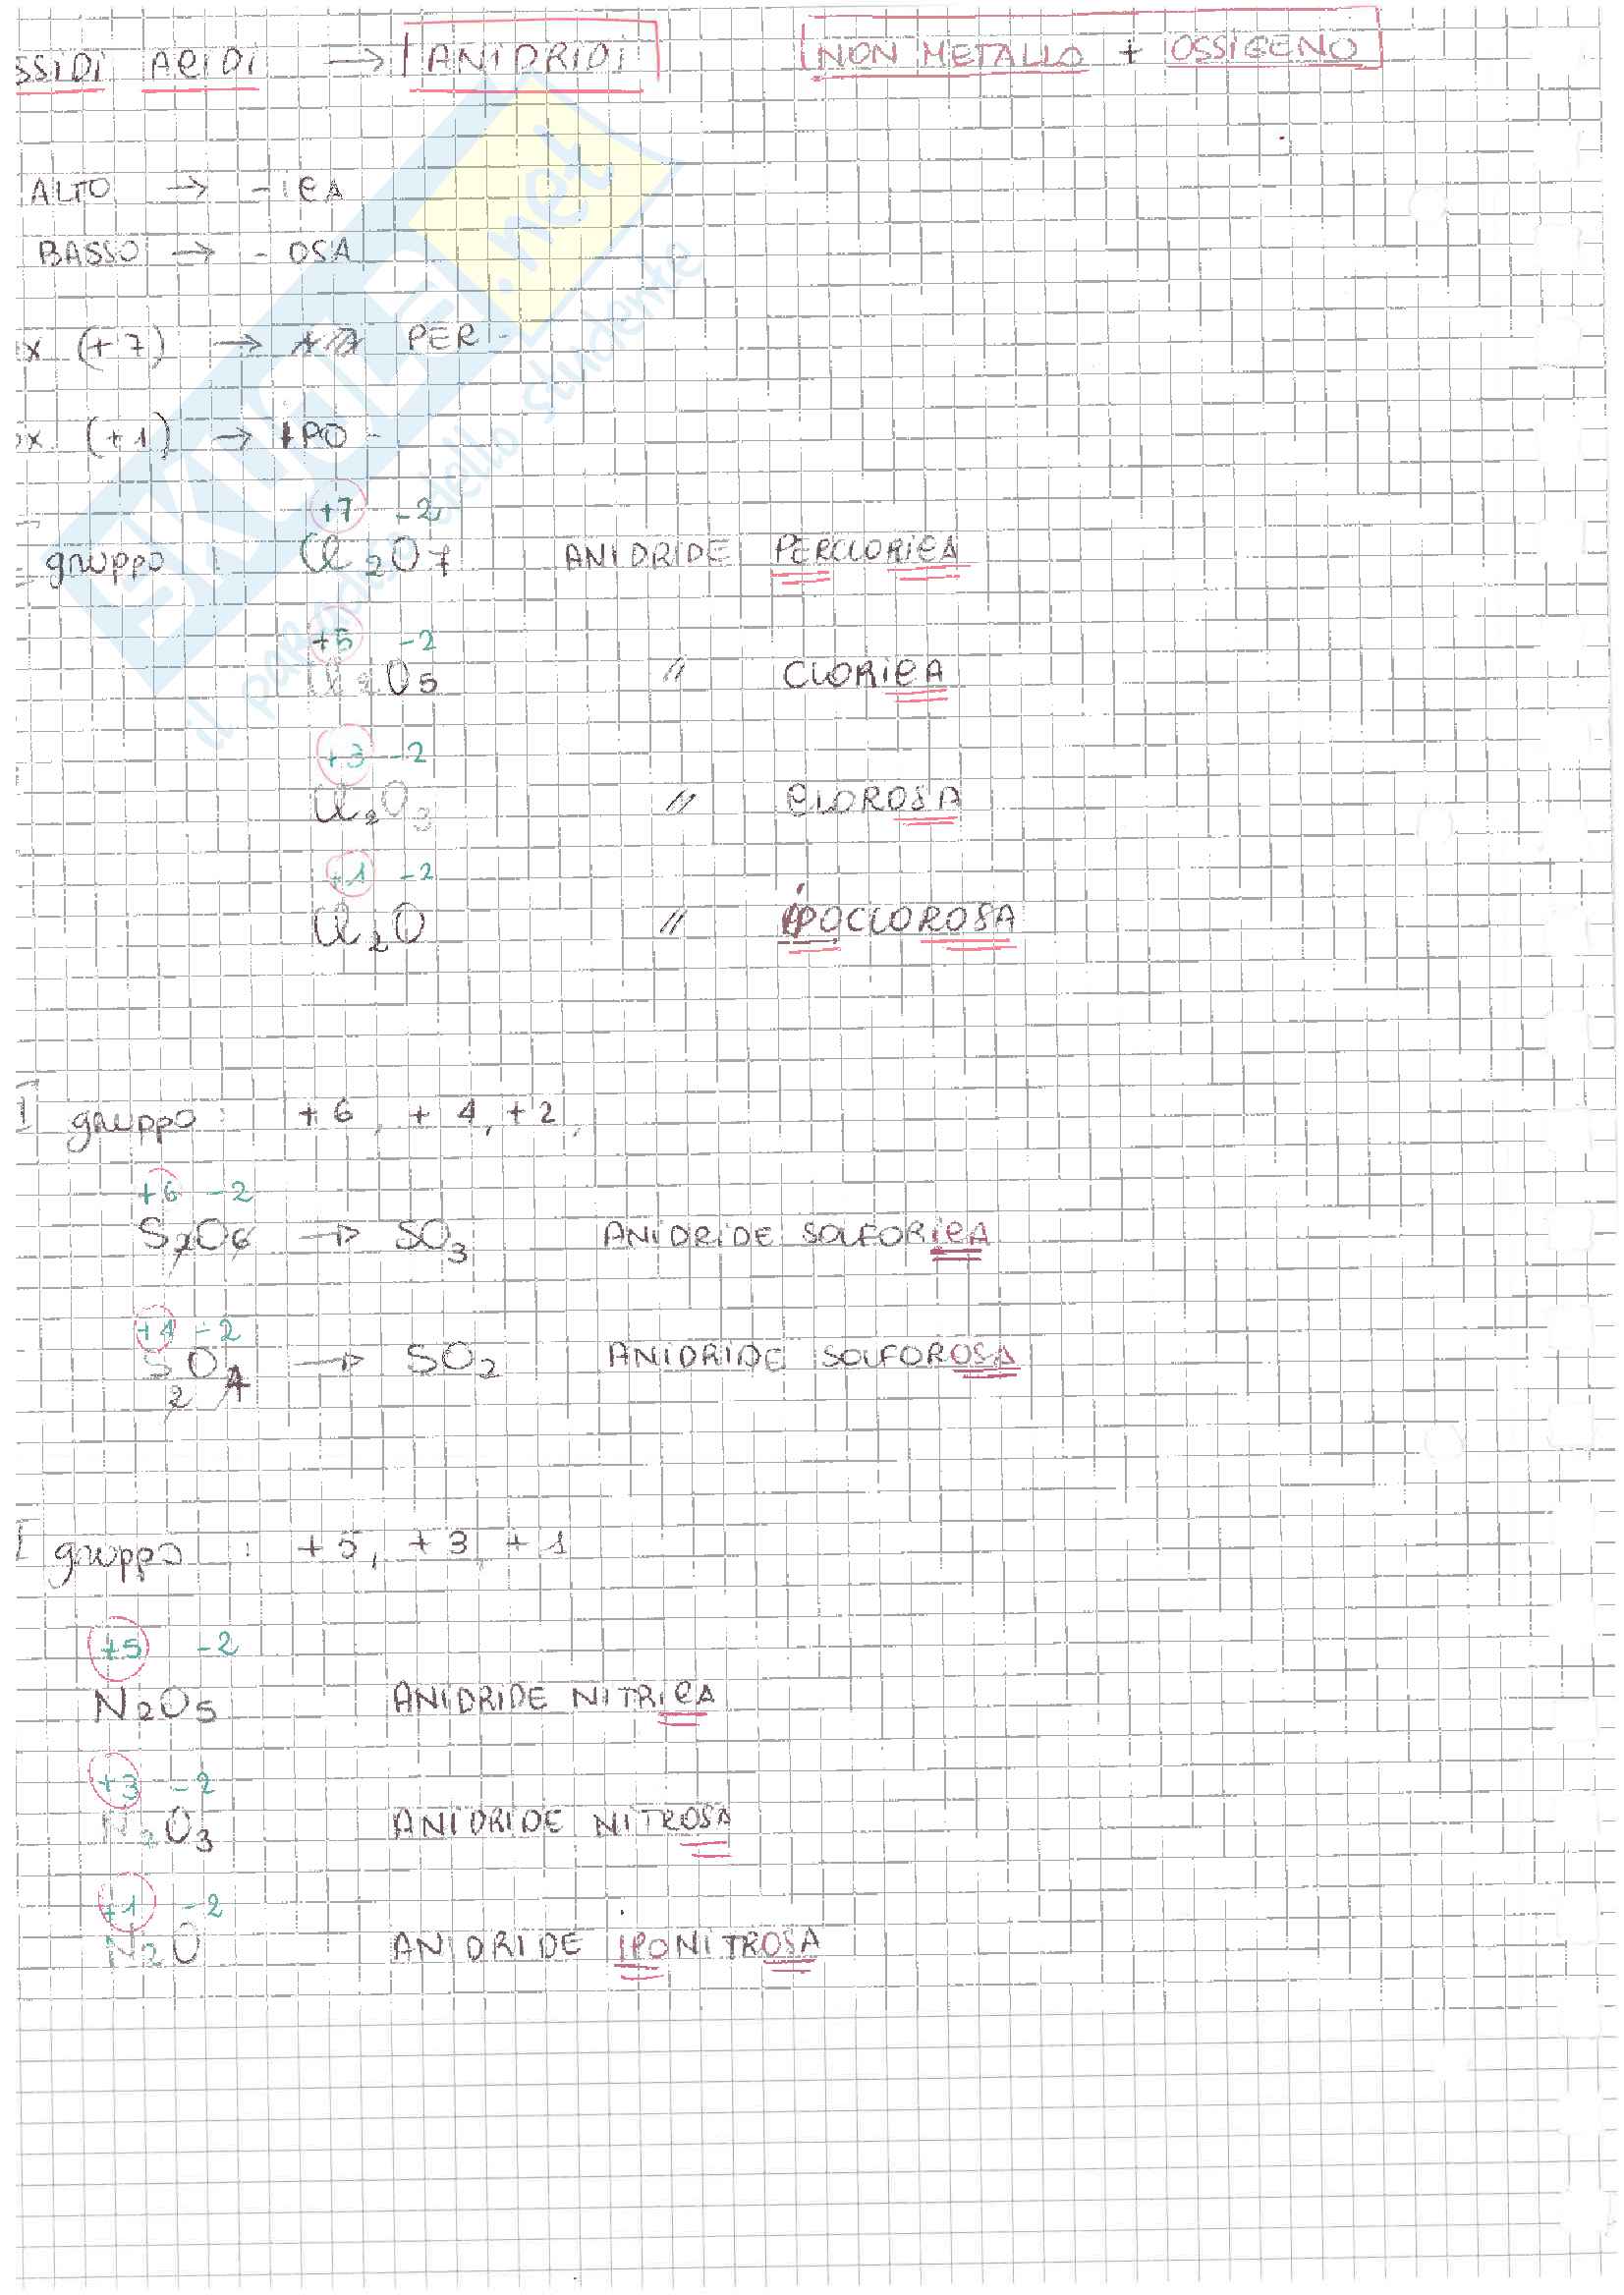 SSIDI ACIDI → ANIDRIDI NON METALLO + OSSIGENO
ALTO → - ICA
BASSO → - OSA
x (+7) → PER -
ox (+1) → IPO -
+7 -2
gruppo Cl2O7 ANIDRIDE PERCLORICA
+5 -2
Cl2O5 // CLORICA
+3 -2
Cl2O3 // CLOROSA
+1 -2
Cl2O // IPOCLOROSA
I gruppo: +6, +4, +2,
+6 -2
S2O6 → SO3 ANIDRIDE SOLFORICA
+4 -2
S2O4 → SO2 ANIDRIDE SOLFOROSA
I gruppo : +5, +3, +1
+5 -2
N2O5 ANIDRIDE NITRICA
+3 -2
N2O3 ANIDRIDE NITROSA
+1 -2
N2O ANIDRIDE IPONITROSA